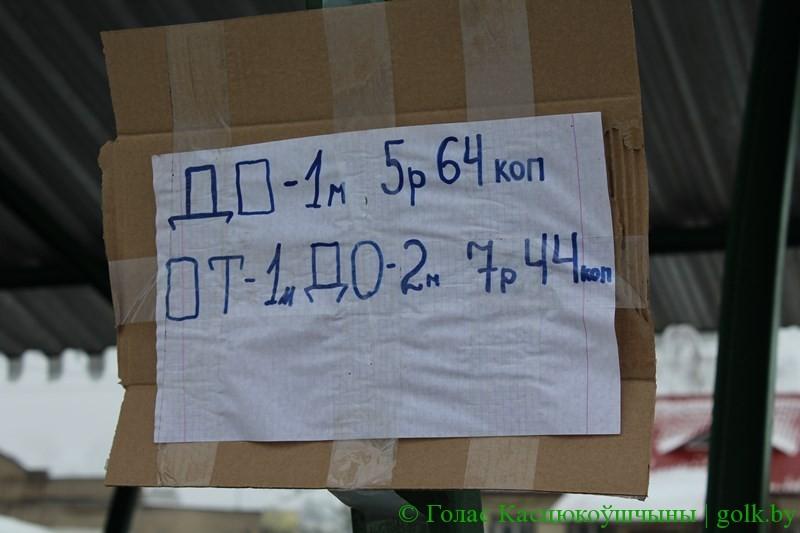 ДО-1м 5р 64 коп
ОТ-1м ДО-2м 7р 44 коп
© Голас Касцюкоўшчыны | golk.by